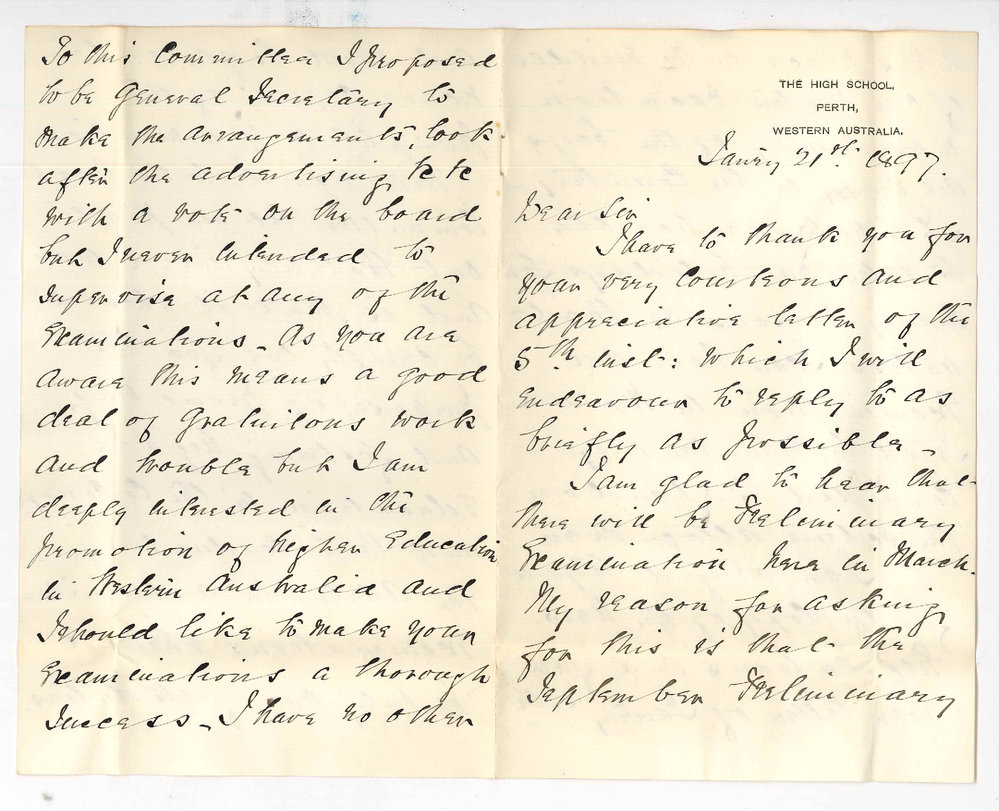 THE HIGH SCHOOL,
PERTH,
WESTERN AUSTRALIA.
Janry 21st 1897.
Dear Sir
I have to thank you for
your very courteous and
appreciative letter of the
5th inst: which I will
endeavour to reply to as
briefly as possible -
I am glad to hear that
there will be Preliminary
Examination here in March.
My reason for asking
for this is that the
September Preliminary
To this Committee I proposed
to be General Secretary to
make the arrangements, look
after the advertising, &c &c
with a vote on the board
but I never intended to
supervise at any of the
Examinations - As you are
aware this means a good
deal of gratuitous work
and trouble but I am
deeply interested in the
promotion of higher Education
in Western Australia and
I should like to make your
Examinations a thorough
success - I have no other